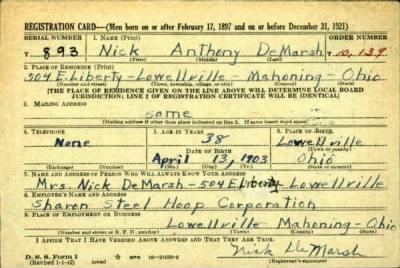 REGISTRATION CARD—(Men born on or after February 17, 1897 and on or before December 31, 1921)
SERIAL NUMBER 1. NAME (Print) ORDER NUMBER
T 893 Nick Anthony DeMarsh T 10,139
(First) (Middle) (Last)
2. PLACE OF RESIDENCE (Print)
504 E. Liberty - Lowellville - Mahoning - Ohio
(Number and street) (Town, township, village, or city) (County) (State)
[THE PLACE OF RESIDENCE GIVEN ON THE LINE ABOVE WILL DETERMINE LOCAL BOARD
JURISDICTION; LINE 2 OF REGISTRATION CERTIFICATE WILL BE IDENTICAL]
3. MAILING ADDRESS
same
[Mailing address if other than place indicated on line 2. If same insert word same]
4. TELEPHONE 5. AGE IN YEARS 6. PLACE OF BIRTH
None 38 Lowellville
DATE OF BIRTH (Town or county)
April 13, 1903 Ohio
(Exchange) (Number) (Mo.) (Day) (Yr.) (State or country)
7. NAME AND ADDRESS OF PERSON WHO WILL ALWAYS KNOW YOUR ADDRESS
Mrs. Nick DeMarsh - 504 E. Liberty - Lowellville
8. EMPLOYER'S NAME AND ADDRESS
Sharon Steel Hoop Corporation
9. PLACE OF EMPLOYMENT OR BUSINESS
Lowellville Mahoning - Ohio
(Number and street or R. F. D. number) (Town) (County) (State)
I AFFIRM THAT I HAVE VERIFIED ABOVE ANSWERS AND THAT THEY ARE TRUE.
D. S. S. Form 1
(Revised 1-1-42) GPO 16-21630-2 Nick DeMarsh
(Registrant's signature)